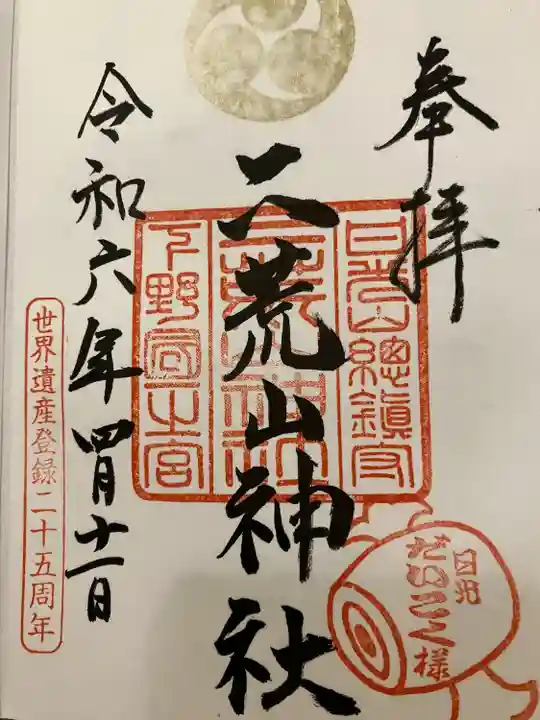 奉拝
日光山總鎮守
二荒山神社
二荒山神社
下野國一之宮
令和六年四月十一日
世界遺産登録二十五周年
日光
だいこく様